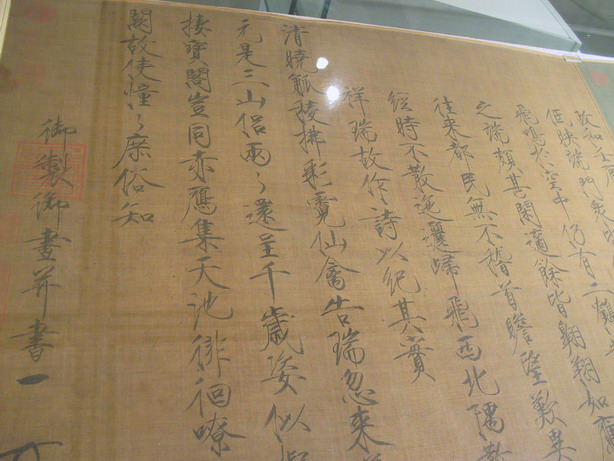 政和壬
低映端門眾
飛鳴於空中仍有二鶴
之端頗甚閒適餘皆翱翔如應
往來都民無不稽首瞻望歎異
經時不散迤邐歸飛西北隅散
祥瑞故作詩以紀其實
清曉觚稜拂彩霓仙禽告瑞忽來
元是三山侶兩々還呈千歲姿似擬
棲寶閣豈同赤鴈集天池徘徊嘹
闕故使憧々庶俗知
御製御畫并書